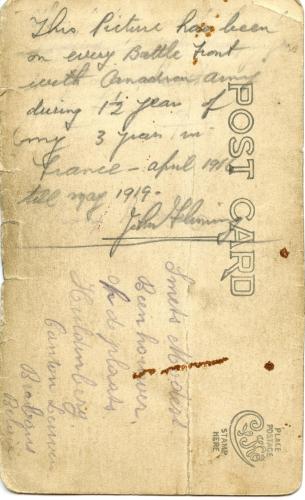 This Picture has been
on every Battle Front
with Canadian army
during 1½ year of
my 3 years in
France - april 1916
till may 1919-
John Fleming
POST CARD
Smets Medard
Beenhouwer
op de plaats
Huldenberg
Canton Leuven
PLACE
POSTAGE
STAMP
HERE
CYKO